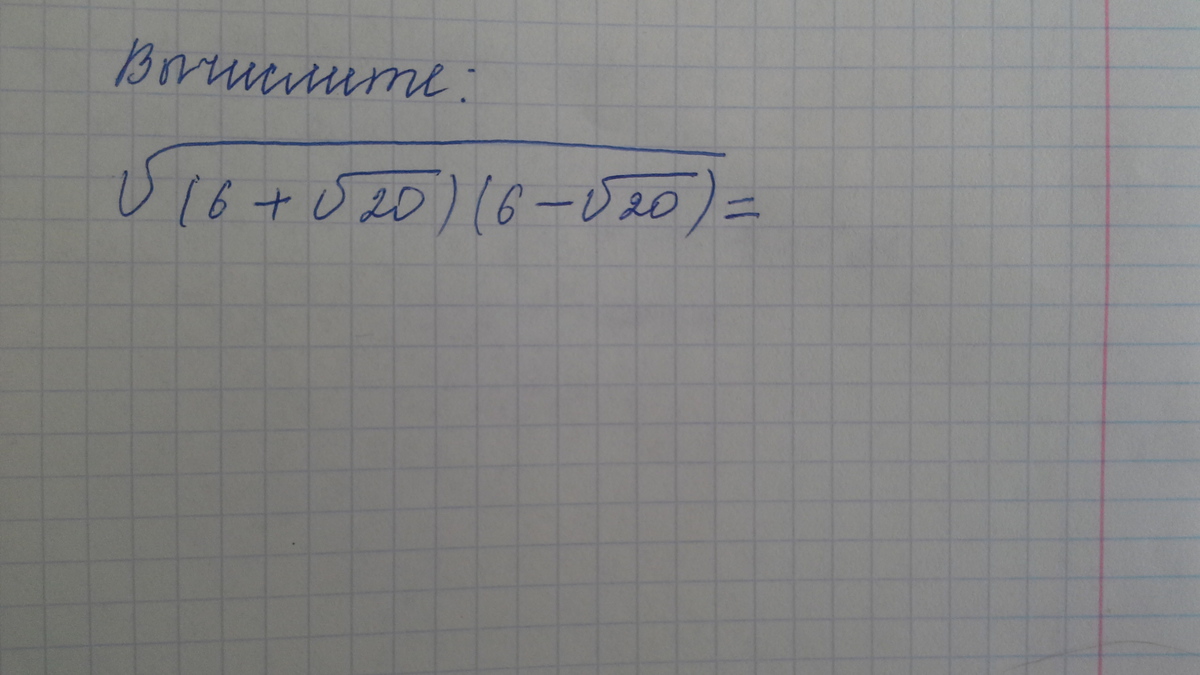 Вычислите:
√(6 + √20)(6 - √20) =